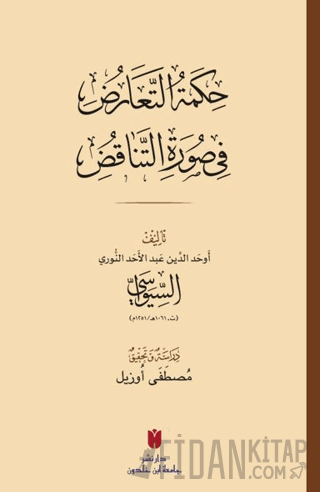 حِكْمَةُ التَّعَارُضِ
فِي صُورَةِ التَّنَاقُضِ
تَأْلِيْفُ
أوحَد الدِّين عَبد الأحَد النُّوري
السِّيْوَاسِيّ
(ت. ١٠٦١هـ/١٦٥١م)
دِرَاسَةٌ وَتَحْقِيْقٌ
مُصطَفَى أوزيل
دار نشر
جامعة ابن خلدون
FİDANKİTAP
.com